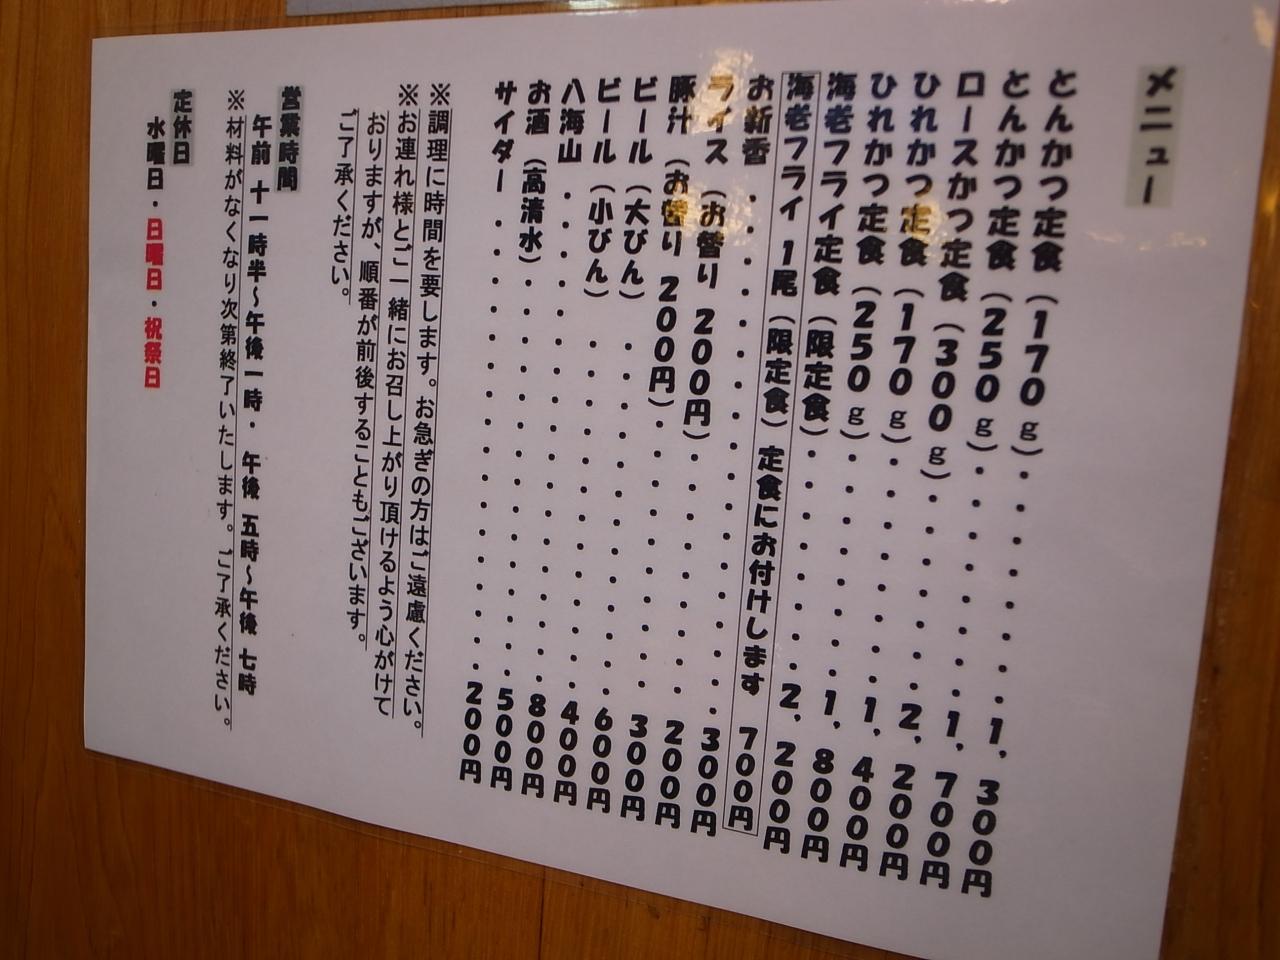 メニュー
とんかつ定食(170g)・・・・・・・1,300円
とんかつ定食(250g)・・・・・・・1,700円
ロースかつ定食(300g)・・・・・・2,200円
ひれかつ定食(170g)・・・・・・・1,400円
ひれかつ定食(250g)・・・・・・・1,800円
海老フライ定食(限定食)・・・・・・・2,200円
海老フライ 1尾(限定食)定食にお付けします 700円
お新香・・・・・・・・・・・・・・・300円
ライス(お替り 200円)・・・・・・・・200円
豚汁(お替り 200円)・・・・・・・・300円
ビール(大びん)・・・・・・・・・・600円
ビール(小びん)・・・・・・・・・・400円
八海山・・・・・・・・・・・・・・・800円
お酒(高清水)・・・・・・・・・・・500円
サイダー・・・・・・・・・・・・・・200円
※調理に時間を要します。お急ぎの方はご遠慮ください。
※お連れ様とご一緒にお召し上がり頂けるよう心がけて
おりますが、順番が前後することもございます。
ご了承ください。
営業時間
午前 十一時半~午後一時・ 午後 五時~午後 七時
※材料がなくなり次第終了いたします。ご了承ください。
定休日
水曜日・日曜日・祝祭日